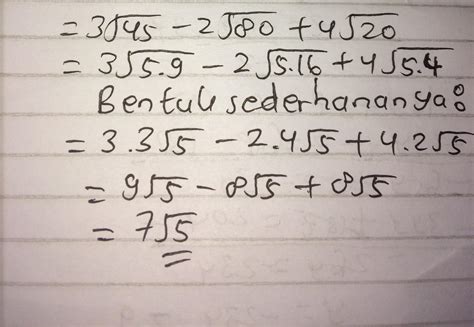 = 3√45 - 2√80 + 4√20
= 3√5.9 - 2√5.16 + 4√5.4
Bentuk sederhananya:
= 3.3√5 - 2.4√5 + 4.2√5
= 9√5 - 8√5 + 8√5
= 7√5